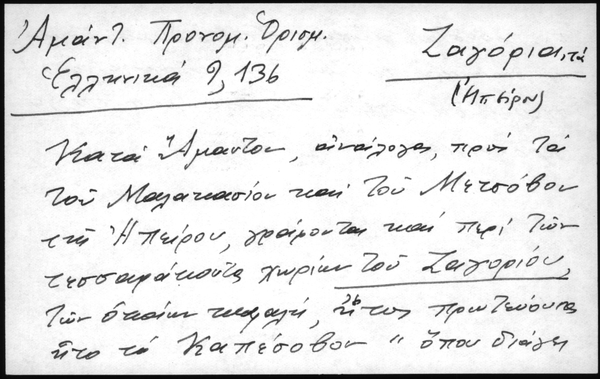 Ἀμάντ. Προνομ. Ὁρισμ.
Ἑλληνικά 9, 136
Ζαγόρια, τά
(Ἠπείρου)
Κατά Ἄμαντον, ἀναλόγως, πρός τά
τοῦ Μαλακασίου καί τοῦ Μετσόβου
τῆς Ἠπείρου, γράφονται καί περί τῶν
τεσσαράκοντα χωρίων τοῦ Ζαγορίου,
τῶν ὁποίων κεφαλή, ἤτοι πρωτεύουσα
ἦτο τό Καπέσοβον "ὅπου διάγει